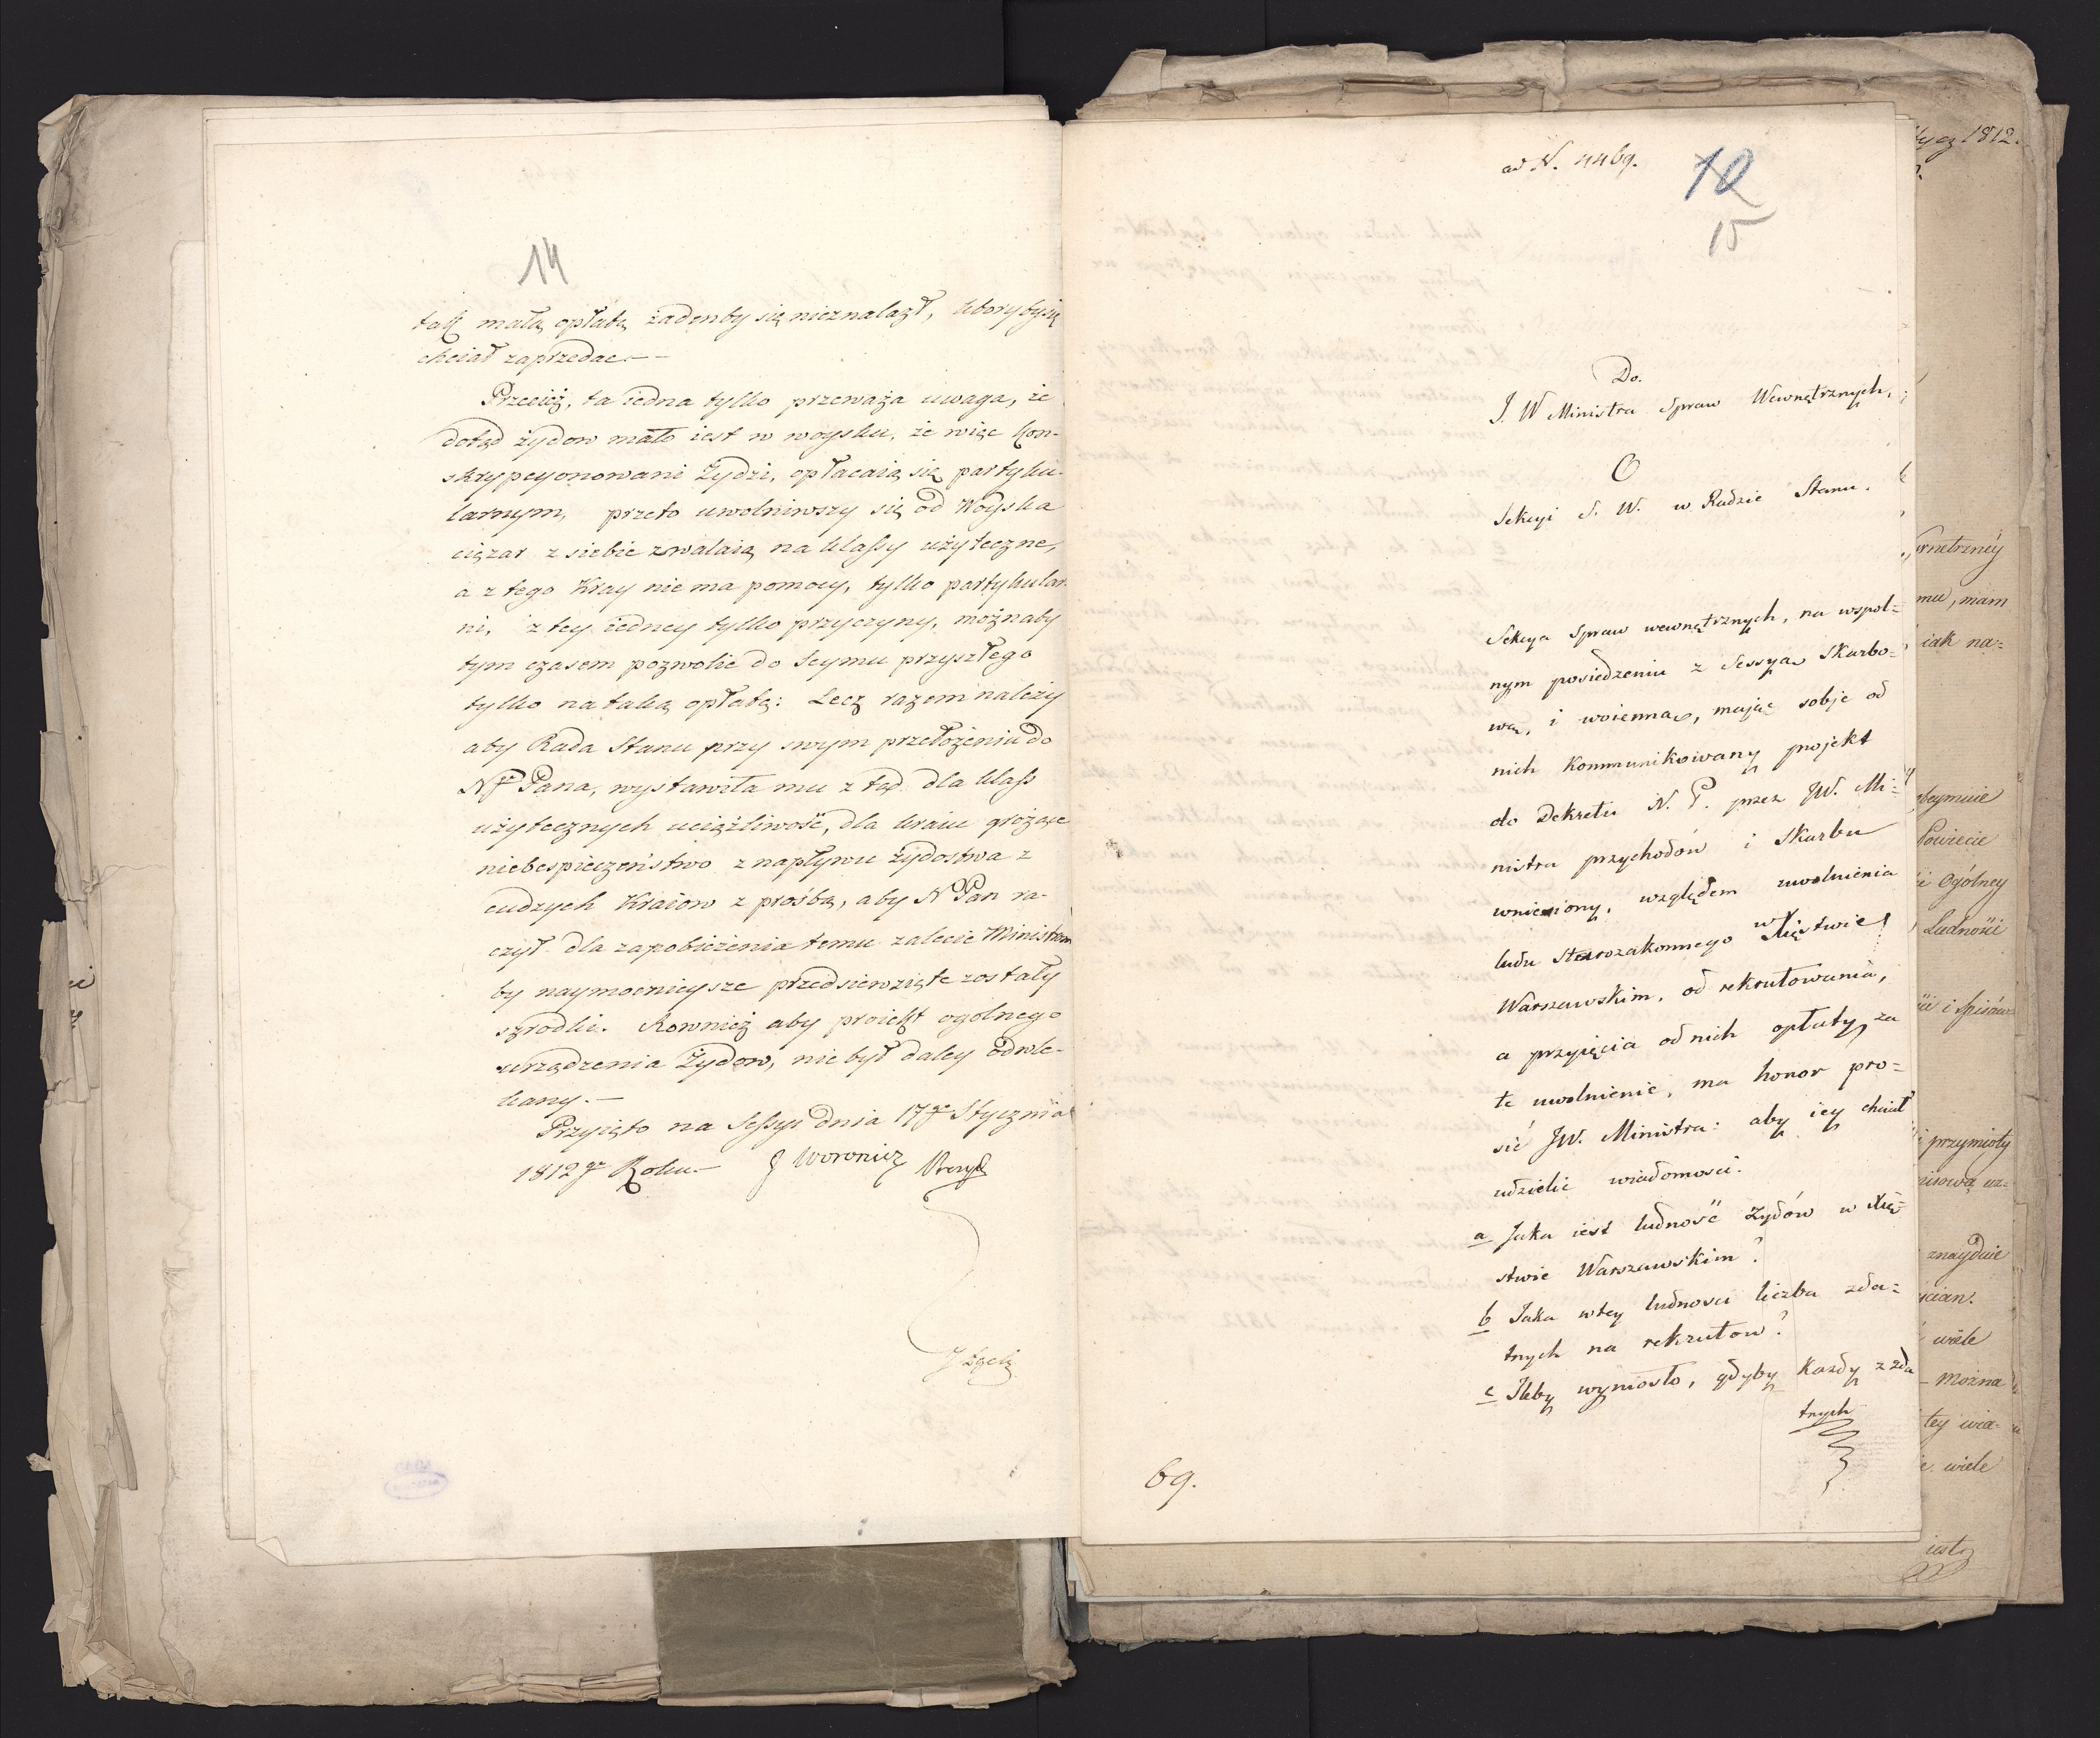 14
tak małą opłatą żadenby się nieznalazł, któryby się
chciał zaprzedac. —
Przecież, ta iedna tylko przeważa uwaga, że
dotąd żydow mało iest w woysku, że więc kon-
skrypcyonowani Żydzi, opłacaią się partyku-
larnym, przeto uwolniwszy się od Woyska
ciężar z siebie zwalaią na klassy użyteczne,
a z tego Kray nie ma pomocy, tylko partykular-
ni, z tey iedney tylko przyczyny, możnaby
tym czasem pozwolic do Seymu przyszłego
tylko na taką opłatę: Lecz razem należy
aby Rada Stanu przy swym przełożeniu do
N Pana, wystawiła mu z tąd dla klass
użytecznych uciążliwość, dla kraiu grożące
niebespieczeństwo z napływu żydostwa z
cudzych Kraiow z prośbą, aby N Pan ra-
czył dla zapobieżenia temu zalecic Ministrom
by naymocnieysze przedsiewzięte zostały
szrodki. Rownież aby proiekt ogolnego
urządzenia Żydow, nie był daley odwle-
kany. —
Przyięto na Sessyi dnia 17go Stycznia
1812go Roku — J Woronicz
ad N. 4469.
10
15
Do.
J. W Ministra Spraw Wewnętrznych.
O
Sekcyi S. W. w Radzie Stanu.
Sekcya Spraw wewnętrznych, na wspol=
nym posiedzeniu z Sessyą Skarbo=
wą, i woienną, maiąc sobie od
nich kommunikowany projekt
do Dekretu N. P. przez JW. Mi=
nistra przychodów i Skarbu
wniesiony, względem uwolnienia
ludu Starozakonnego w Xięstwie
Warszawskim, od rekrutowania,
a przyięcia od nich opłaty za
te uwolnienie, ma honor pro=
sić JW. Ministra: aby iey chciał
udzielić wiadomości.
a Jaka iest ludność Żydów w Xię=
stwie Warszawskim?
b Jaka w tey ludności liczba zda=
tnych na rekrutow?
c Ileby wyniosło, gdyby każdy z zda
tnych
69.
1812.
mu, mam
iak na=
Powiecie
Ogólney
Ludności
przymioty
znayduie
wiele
można
tey wia-
wiele
iest